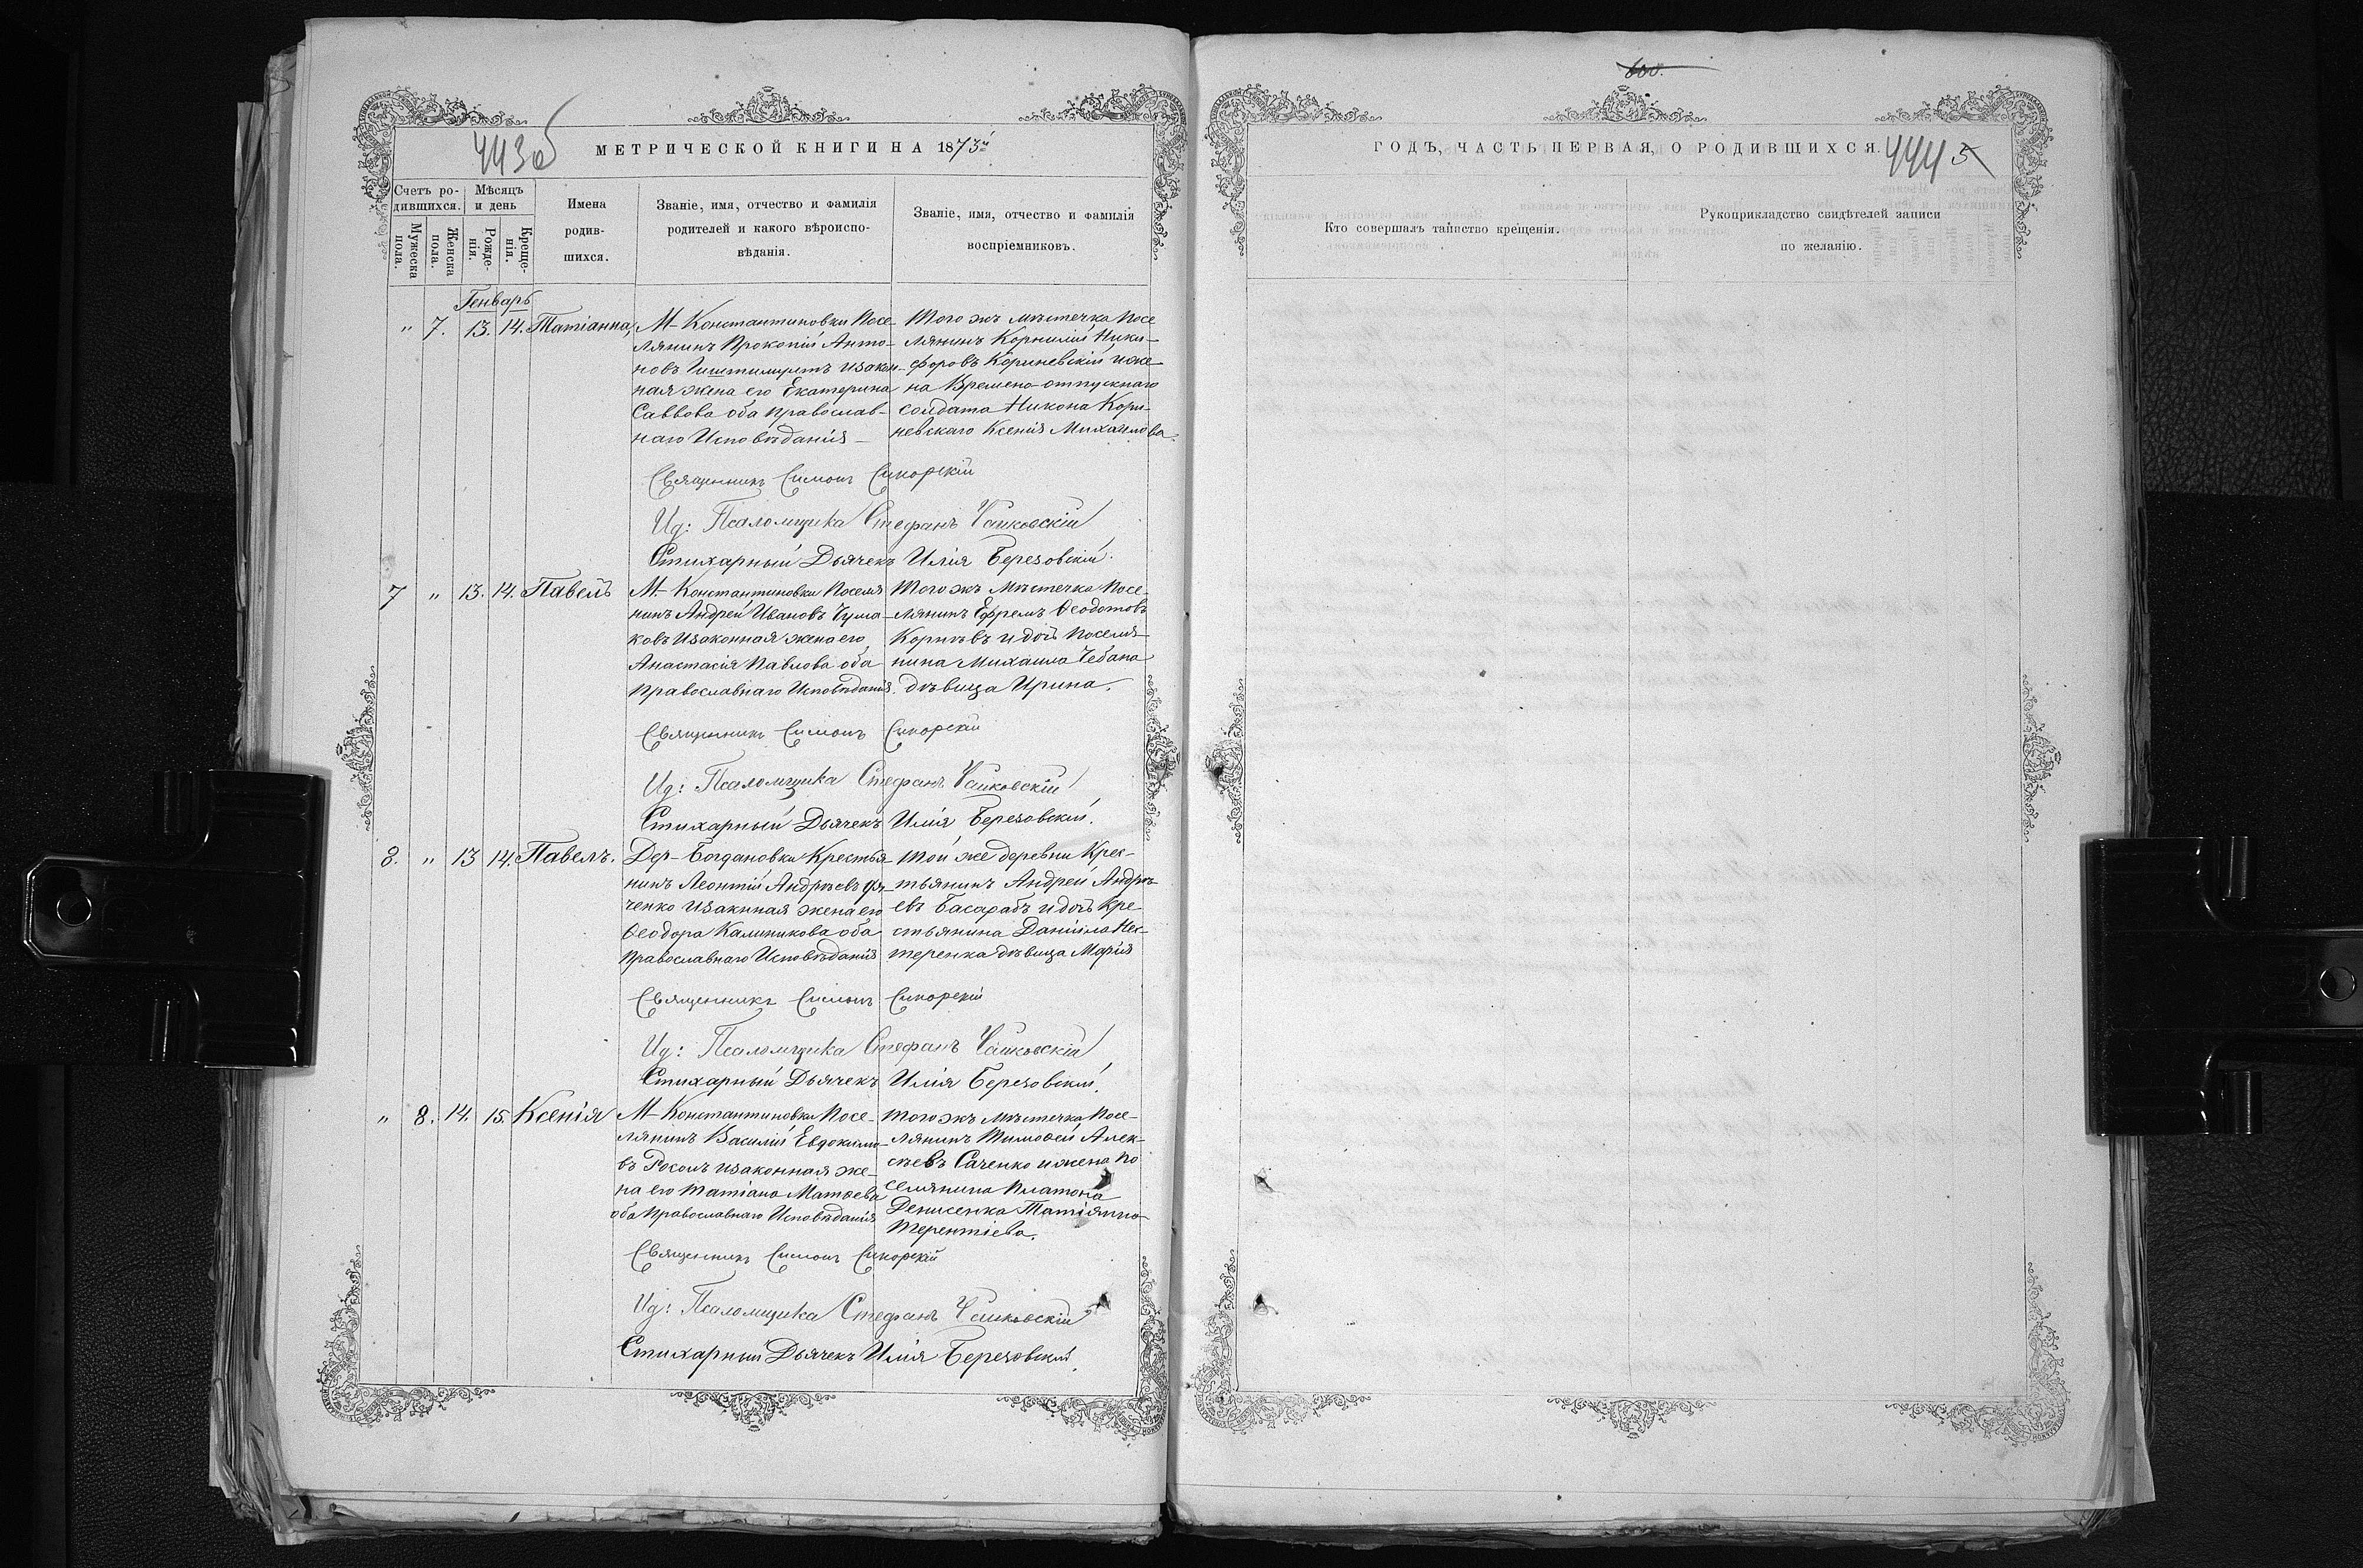 443об
МЕТРИЧЕСКОЙ КНИГИ НА 1873й
Счетъ ро-
дившихся.
Мѣсяцъ
и день
Мужеска
пола.
Женска
пола.
Рожде-
нія.
Креще-
нія.
Имена
родив-
шихся.
Званіе, имя, отчество и фамилія
родителей и какого вѣроиспо-
вѣданія.
Званіе, имя, отчество и фамилія
воспріемниковъ.
Генварь
" 7. 13. 14. Татіанна,
М- Константиновки Посе-
лянинъ Прокопій Анто-
новъ изакон-
ная жена его Екатерина
Саввова оба православ-
наго Исповѣданія -
Того жъ мѣстечка Посе
лянинъ Корнилій Ники-
форовъ Кориневскій и же-
на Времено-отпускнаго
солдата Никона Кори-
невскаго Ксенія Михаилова.
Священникъ Симонъ Сикорскій
Ид: Псаломщика Стефанъ Чайковскій
Стихарный Дьячекъ Илія Березовскій.
7 " 13. 14. Павелъ
М- Константиновки Поселя
нинъ Андрей Ивановъ Чума-
ковъ изаконная жена его
Анастасія Павлова оба
православнаго Исповѣданія.
Того жъ Мѣстечка Посе-
лянинъ Ефремъ Ѳеодотовъ
Корнѣвъ и дочь Поселя-
нина Михаила Чебана
дѣвица Ирина.
Священникъ Симонъ Сикорскій
Ид: Псаломщика Стефанъ Чайковскій
Стихарный Дьячекъ Илія Березовскій.
8. " 13 14. Павелъ.
Дер- Богдановки Крестья-
нинъ Леонтій Андреевъ
ченко изакнная жена его
Ѳеодора Калиникова оба
православнаго Исповѣданія
Той же деревни Крес-
тьянинъ Андрей Андрѣ-
евъ Басарабъ и дочь Кре-
стьянина Даніила Нес-
теренка дѣвица Марія
Священникъ Симонъ Сикорскій
Ид: Псаломщика Стефанъ Чайковскій
Стихарный Дьячекъ Илія Березовскій.
" 8. 14. 15. Ксенія
М- Константиновки Посе-
лянинъ Василій Евдокимо-
въ изаконная же-
на его Татіана Матѳева
оба Православнаго Исповѣданія
Того жъ мѣстечка Посе-
лянинъ Тимоѳей Алек-
сѣевъ Саченко и жена По
селянина Платона
Денисенка Татіянна
Терентіева.
Священникъ Симонъ Сикорскій
Ид: Псаломщика Стефанъ Чайковскій
Стихарный Дьячекъ Илія Березовскій.
ГОДЪ, ЧАСТЬ ПЕРВАЯ, О РОДИВШИХСЯ.
444
Кто совершалъ таинство крещенія.
Рукоприкладство свидѣтелей записи
по желанію.